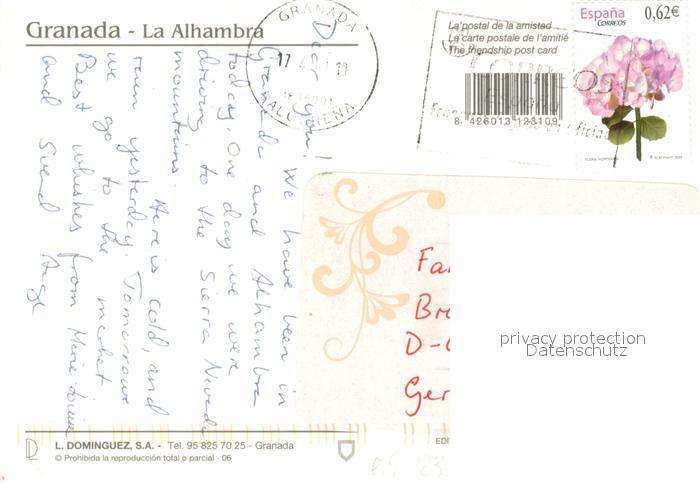 Granada - La Alhambra
GRANADA
17
10
ALCHERENA
La postal de la amistad
La carte postale de l'amitié
The friendship post card
8 426013 123109
España
CORREOS
0,62€
Dear you! We have been in
Granada and Alhambra
today. One day we were
driving to the Sierra Nevada
mountains. Here is cold, and
rain yesterday. Tomorrow
we go to the market
Best whishes from Marie Louise
and Svend Aage
Fa
Br
D-
Ger
privacy protection
Datenschutz
L. DOMINGUEZ, S.A. - Tel. 95 825 70 25 - Granada
© Prohibida la reproducción total o parcial - 06
EDI